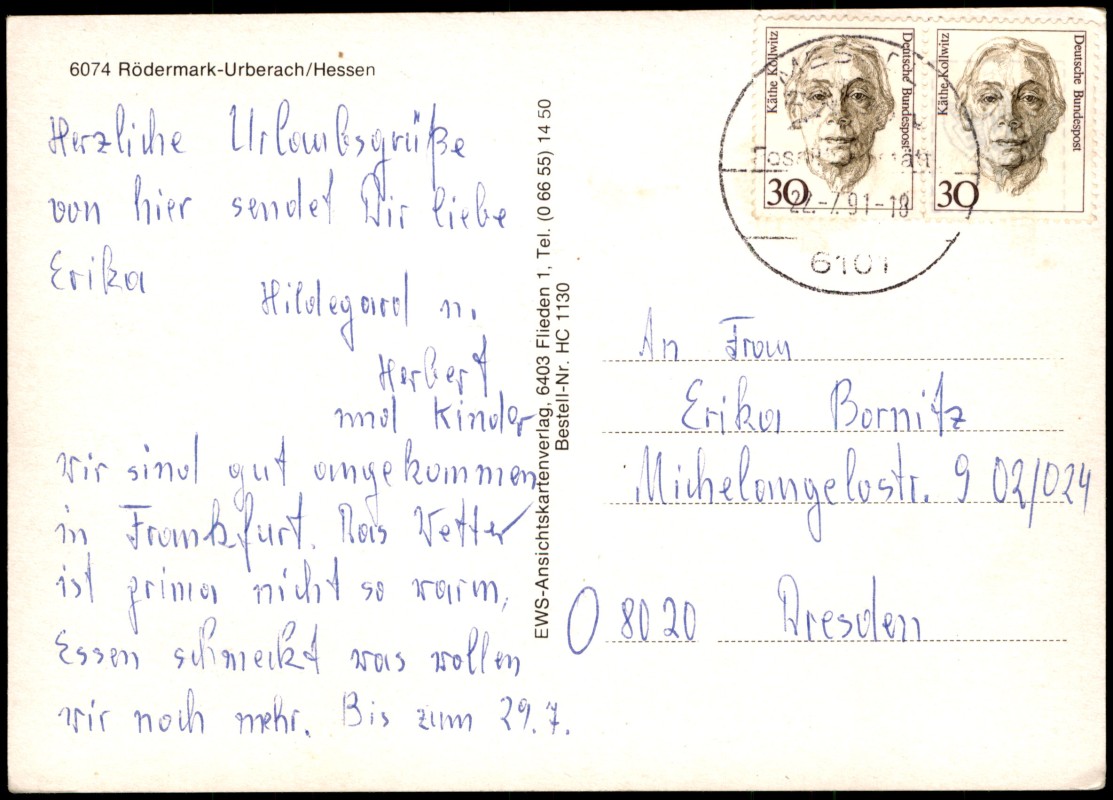 6074 Rödermark-Urberach/Hessen
Herzliche Urlaubsgrüße
von hier sendet Dir liebe
Erika
Hildegard u.
Herbert
und Kinder
wir sind gut angekommen
in Frankfurt. Das Wetter
ist prima nicht so warm,
Essen schmeckt was wollen
wir noch mehr. Bis zum 29.7.
EWS-Ansichtskartenverlag, 6403 Flieden 1, Tel. (0 66 55) 14 50
Bestell-Nr. HC 1130
Käthe Kollwitz
Deutsche Bundespost
30
Käthe Kollwitz
Deutsche Bundespost
30
22.-7.91-18
6101
An Frau
Erika Bornitz
Michelangelostr. 9 02/024
O 8020 Dresden